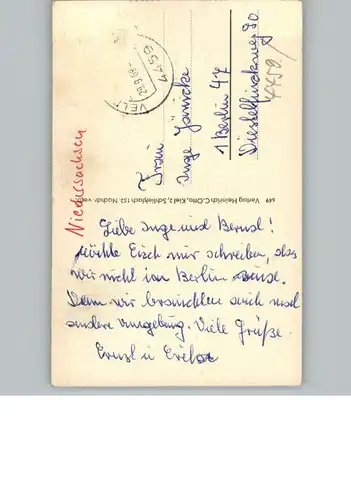 Niedersachsen
VEL
29.9.69-
4459
Frau
Inge Jänicke
1 Berlin 47
80
4459/
549 Verlag Heinrich C. Otto, Kiel 2, Schließfach 152. Nachdr. verb.
Liebe Inge und Bernd!
möchte Euch nur schreiben, das
wir nicht in Berlin sind.
Denn wir brauchten auch mal
andere Umgebung. Viele Grüße.
u